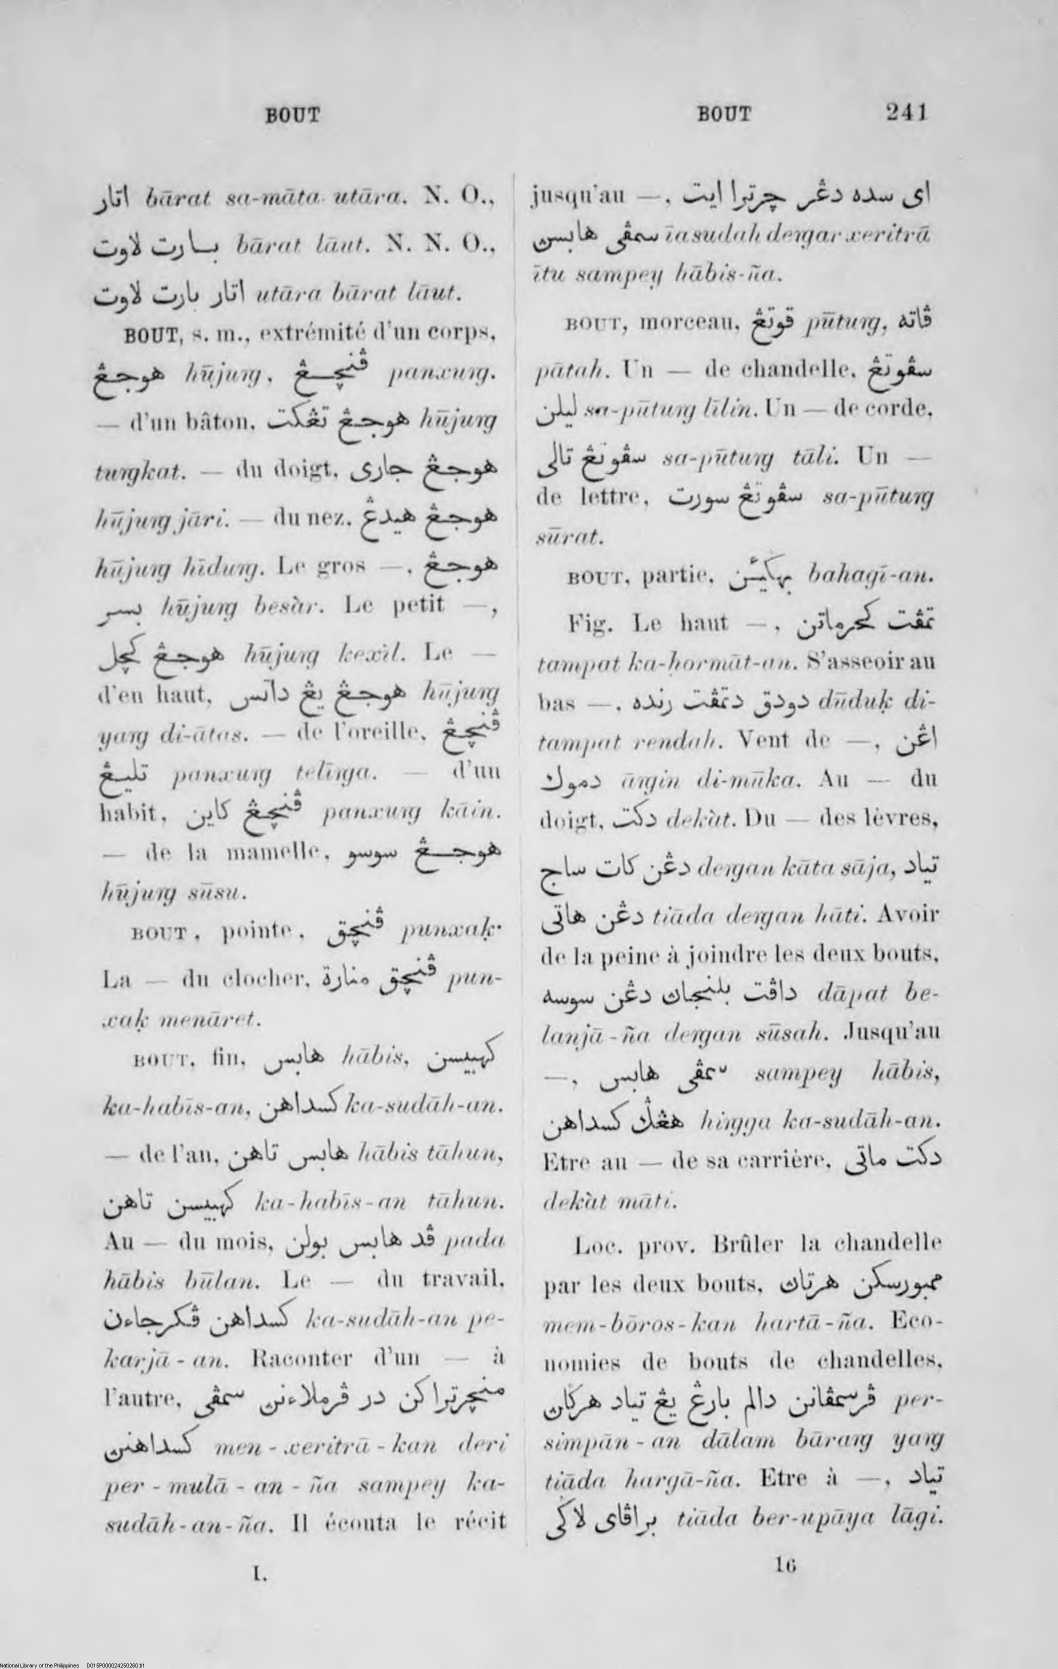 BOUT
BOUT 241
اتار bārat sa-māta utāra. N. O.,
بارت لاوت bārat lāut. N. N. O.,
اتار بارت لاوت utāra bārat lāut.
BOUT, s. m., extrémité d'un corps,
هوجڠ hūjuꞑg, ڤنچڠ panxuꞑg.
— d'un bâton, هوجڠ تڠكت hūjuꞑg
tuꞑgkat. — du doigt, هوجڠ جارى
hūjuꞑg jāri. — du nez, هوجڠ هيدڠ
hūjuꞑg hīduꞑg. Le gros —, هوجڠ
بسر hūjuꞑg besàr. Le petit —,
هوجڠ كچل hūjuꞑg kexìl. Le —
d'en haut, هوجڠ يڠ داتس hūjuꞑg
yaꞑg di-ātas. — de l'oreille, ڤنچڠ
تليڠ panxuꞑg telīꞑga. — d'un
habit, ڤنچڠ كاين panxuꞑg kāin.
— de la mamelle, هوجڠ سوسو
hūjuꞑg sūsu.
BOUT, pointe, ڤنچق punxaḳ.
La — du clocher, ڤنچق منارة pun-
xaḳ menāret.
BOUT, fin, هابس hābis, كهبيسن
ka-habīs-an, كسداهن ka-sudāh-an.
— de l'an, هابس تاهن hābis tāhun,
كهبيسن تاهن ka-habīs-an tāhun.
Au — du mois, ڤد هابس بولن pada
hābis būlan. Le — du travail,
كسداهن ڤكرجاءن ka-sudāh-an pe-
karjā-an. Raconter d'un — à
l'autre, منچرتراكن در ڤرملاءنن سمڤى
كسداهنن men-xeritrā-kan deri
per-mulā-an-ña sampey ka-
sudāh-an-ña. Il écouta le récit
I.
jusqu'au —, اى سده دڠر چرترا ايت
سمڤى هابسن īa sudah deꞑgar xeritrā
ītu sampey hābis-ña.
BOUT, morceau, ڤوتڠ pūtuꞑg, ڤاته
pātah. Un — de chandelle, سڤوتڠ
ليلن sa-pūtuꞑg līlin. Un — de corde,
سڤوتڠ تالى sa-pūtuꞑg tāli. Un —
de lettre, سڤوتڠ سورت sa-pūtuꞑg
sūrat.
BOUT, partie, bahagī-an.
Fig. Le haut —, تمڤت كحرماتن
tampat ka-ḥormāt-an. S'asseoir au
bas —, دودق دتمڤت رنده dūduḳ di-
tampat rendah. Vent de —, اڠن
دموك āꞑgin di-mūka. Au — du
doigt, دكت dekàt. Du — des lèvres,
دڠن كات ساج deꞑgan kāta sāja, تياد
دڠن هاتى tiāda deꞑgan hāti. Avoir
de la peine à joindre les deux bouts,
داڤت بلنجاڽ دڠن سوسه dāpat be-
lanjā-ña deꞑgan sūsah. Jusqu'au
—, سمڤى هابس sampey hābis,
هڠڬ كسداهن hiꞑgga ka-sudāh-an.
Etre au — de sa carrière, دكت ماتى
dekàt māti.
Loc. prov. Brûler la chandelle
par les deux bouts, ممبورسكن هرتاڽ
mem-bōros-kan hartā-ña. Eco-
nomies de bouts de chandelles,
ڤرسمڤانن دالم بارڠ يڠ تياد هرڬاڽ per-
simpān-an dālam bāraꞑg yaꞑg
tiāda hargā-ña. Etre à —, تياد
براڤاى لاڬى tiāda ber-upāya lāgi.
16
National Library of the Philippines